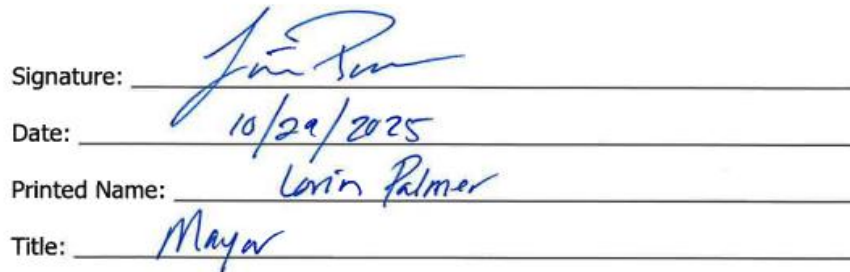 Signature:
Date: 10/29/2025
Printed Name: Lorin Palmer
Title: Mayor